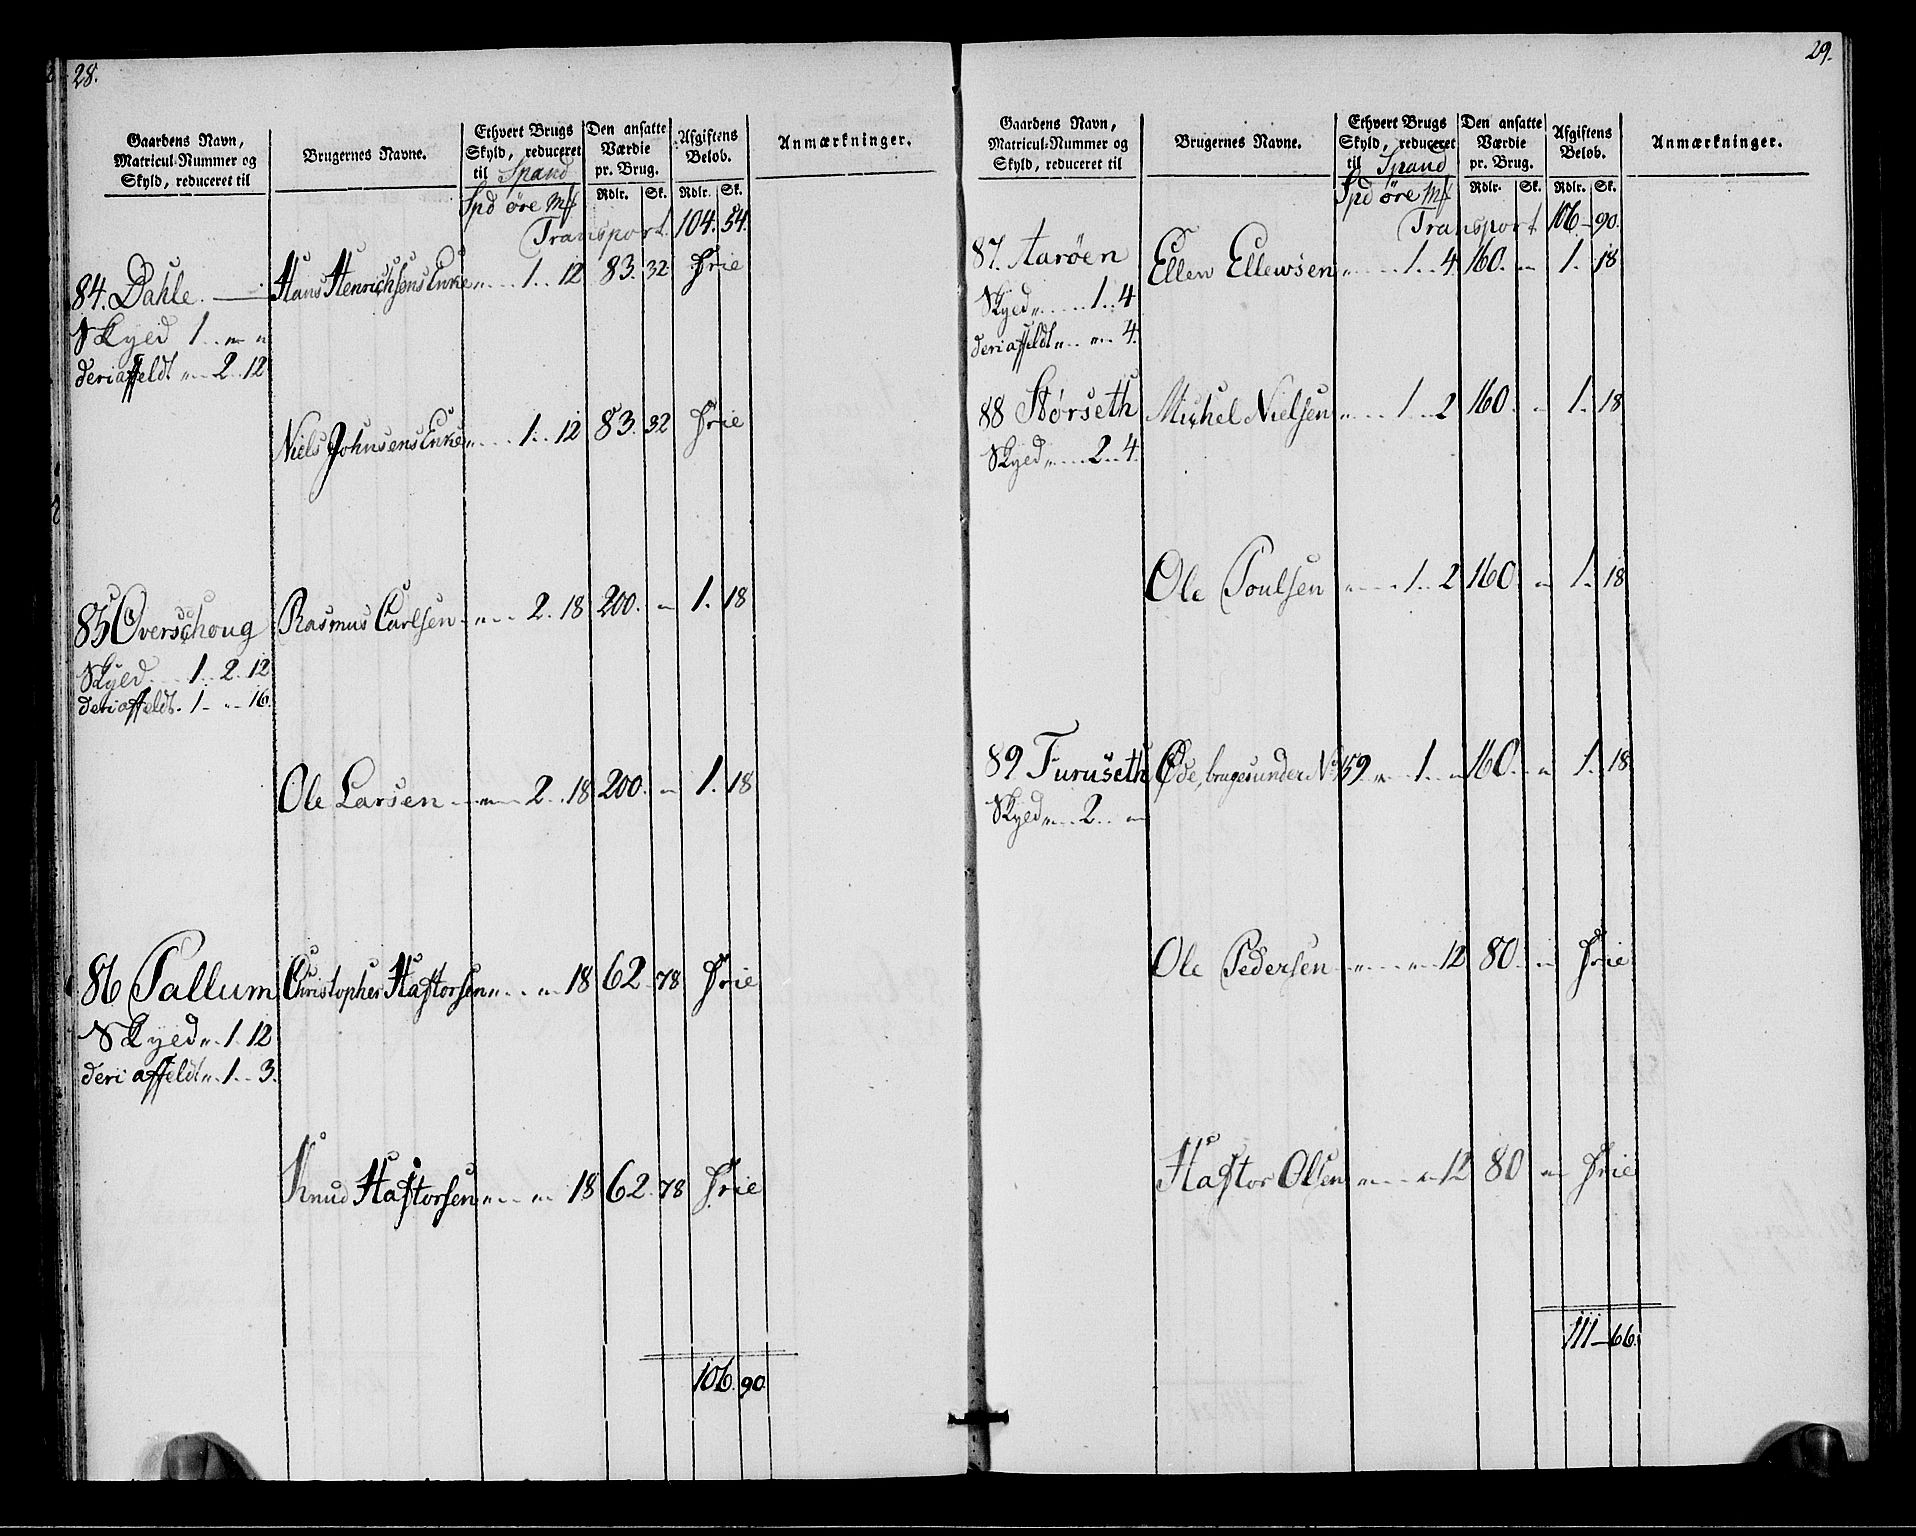 28.
Gaardens Navn, Matricul-Nummer og Skyld, reduceret til
Brugernes Navne.
Ethvert Brugs Skyld, reduceret til Spand
Den ansatte Værdie pr. Brug.
Afgiftens Beløb.
Anmærkninger.
Rdlr. Sk. Rdlr. Sk.
Spd øre Mk
Transport. 104. 54.
84. Dahle. Hans Henrichsøns Enke „ 1. 12 83. 32 Frie
Skyed 1. „ „
deri affeldt „ 2. 12
Niels Johnsens Enke „ 1. 12 83. 32 Frie
85 Overschoug Rasmus Carlsen „ 2. 18 200. „ 1. 18
Skyed 1. 2. 12
deri affeldt. 1 „ 16.
Ole Larsen „ 2. 18 200. „ 1. 18
86 Pallum Christopher Hastorsen „ „ 18 62. 78 Frie
Skyed „ 1. 12
deri affeldt „ 1. 3.
Knud Hastorsen „ „ 18 62. 78 Frie
106. 90.
29.
Gaardens Navn, Matricul-Nummer og Skyld, reduceret til
Brugernes Navne.
Ethvert Brugs Skyld, reduceret til Spand
Den ansatte Værdie pr. Brug.
Afgiftens Beløb.
Anmærkninger.
Rdlr. Sk. Rdlr. Sk.
Spd øre Mk
Transport 106 – 90.
87. Aarøen Ellen Ellewsen „ 1. 4 160. „ 1. 18
Skyed „ 1. 4
deri affeldt „ „ 4.
88 Størseth Michel Nielsen „ 1. 2 160. „ 1. 18
Skyed „ 2. 4.
Ole Poulsen „ 1. 2 160. „ 1. 18
89 Furuseth Øde, bruges under No 159 „ 1. „ 160. „ 1. 18
Skyed „ 2. „
Ole Pedersen „ „ 12 80. „ Frie
Hastor Olsen „ „ 12 80 „ Frie
111 – 66.